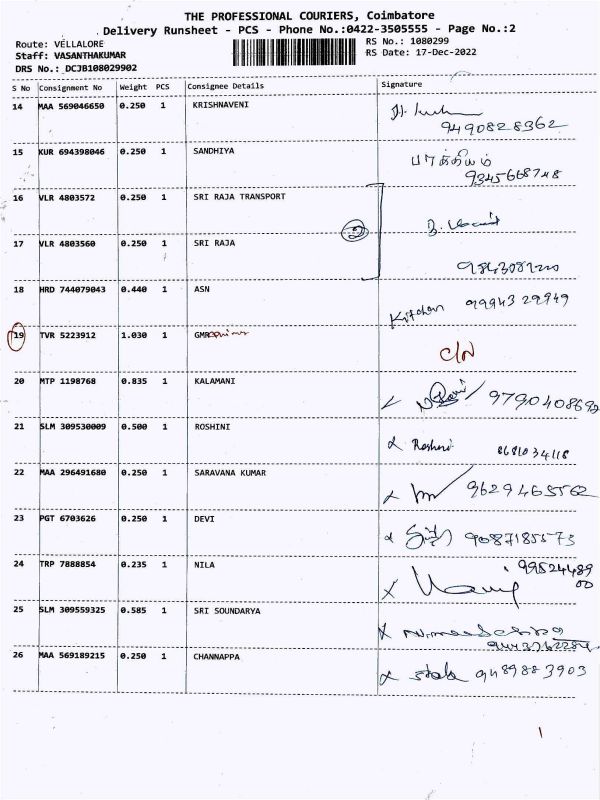 THE PROFESSIONAL COURIERS, Coimbatore
Delivery Runsheet - PCS - Phone No.:0422-3505555 - Page No.:2
Route: VELLALORE RS No.: 1080299
Staff: VASANTHAKUMAR RS Date: 17-Dec-2022
DRS No.: DCJB108029902
S No Consignment No Weight PCS Consignee Details Signature
14 MAA 569046650 0.250 1 KRISHNAVENI
9490828362
15 KUR 694398046 0.250 1 SANDHIYA
9345668748
16 VLR 4803572 0.250 1 SRI RAJA TRANSPORT
2
17 VLR 4803560 0.250 1 SRI RAJA
18 HRD 744079043 0.440 1 ASN
Kitchen 9994329949
19 TVR 5223912 1.030 1 GMR
C/N
20 MTP 1198768 0.835 1 KALAMANI
9790408692
21 SLM 309530009 0.500 1 ROSHINI
Roshini 8681034118
22 MAA 296491680 0.250 1 SARAVANA KUMAR
9629465562
23 PGT 6703626 0.250 1 DEVI
9087185573
24 TRP 7888854 0.235 1 NILA
9952448900
25 SLM 309559325 0.585 1 SRI SOUNDARYA
26 MAA 569189215 0.250 1 CHANNAPPA
9489883903